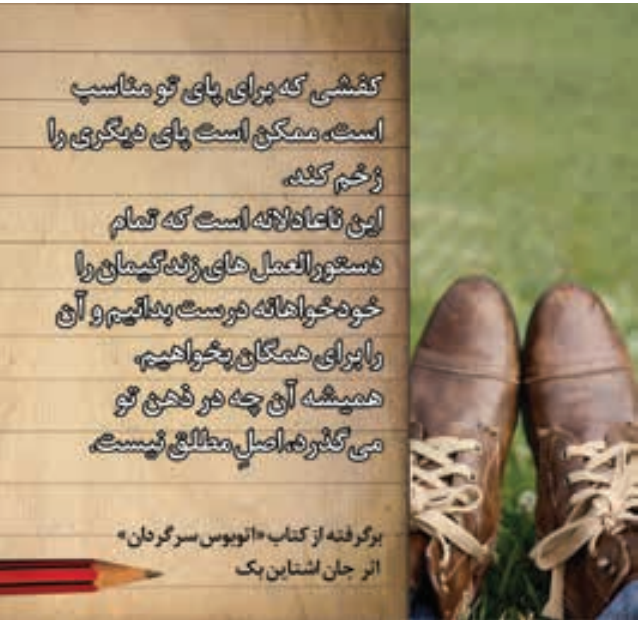 کفشی که برای پای تو مناسب
است، ممکن است پای دیگری را
زخم کند.
این ناعادلانه است که تمام
دستورالعمل های زندگیمان را
خودخواهانه درست بدانیم و آن
را برای همگان بخواهیم.
همیشه آن چه در ذهن تو
می گذرد، اصلِ مطلق نیست.
برگرفته از کتاب «اتوبوس سرگردان»
اثر جان اشتاین بک